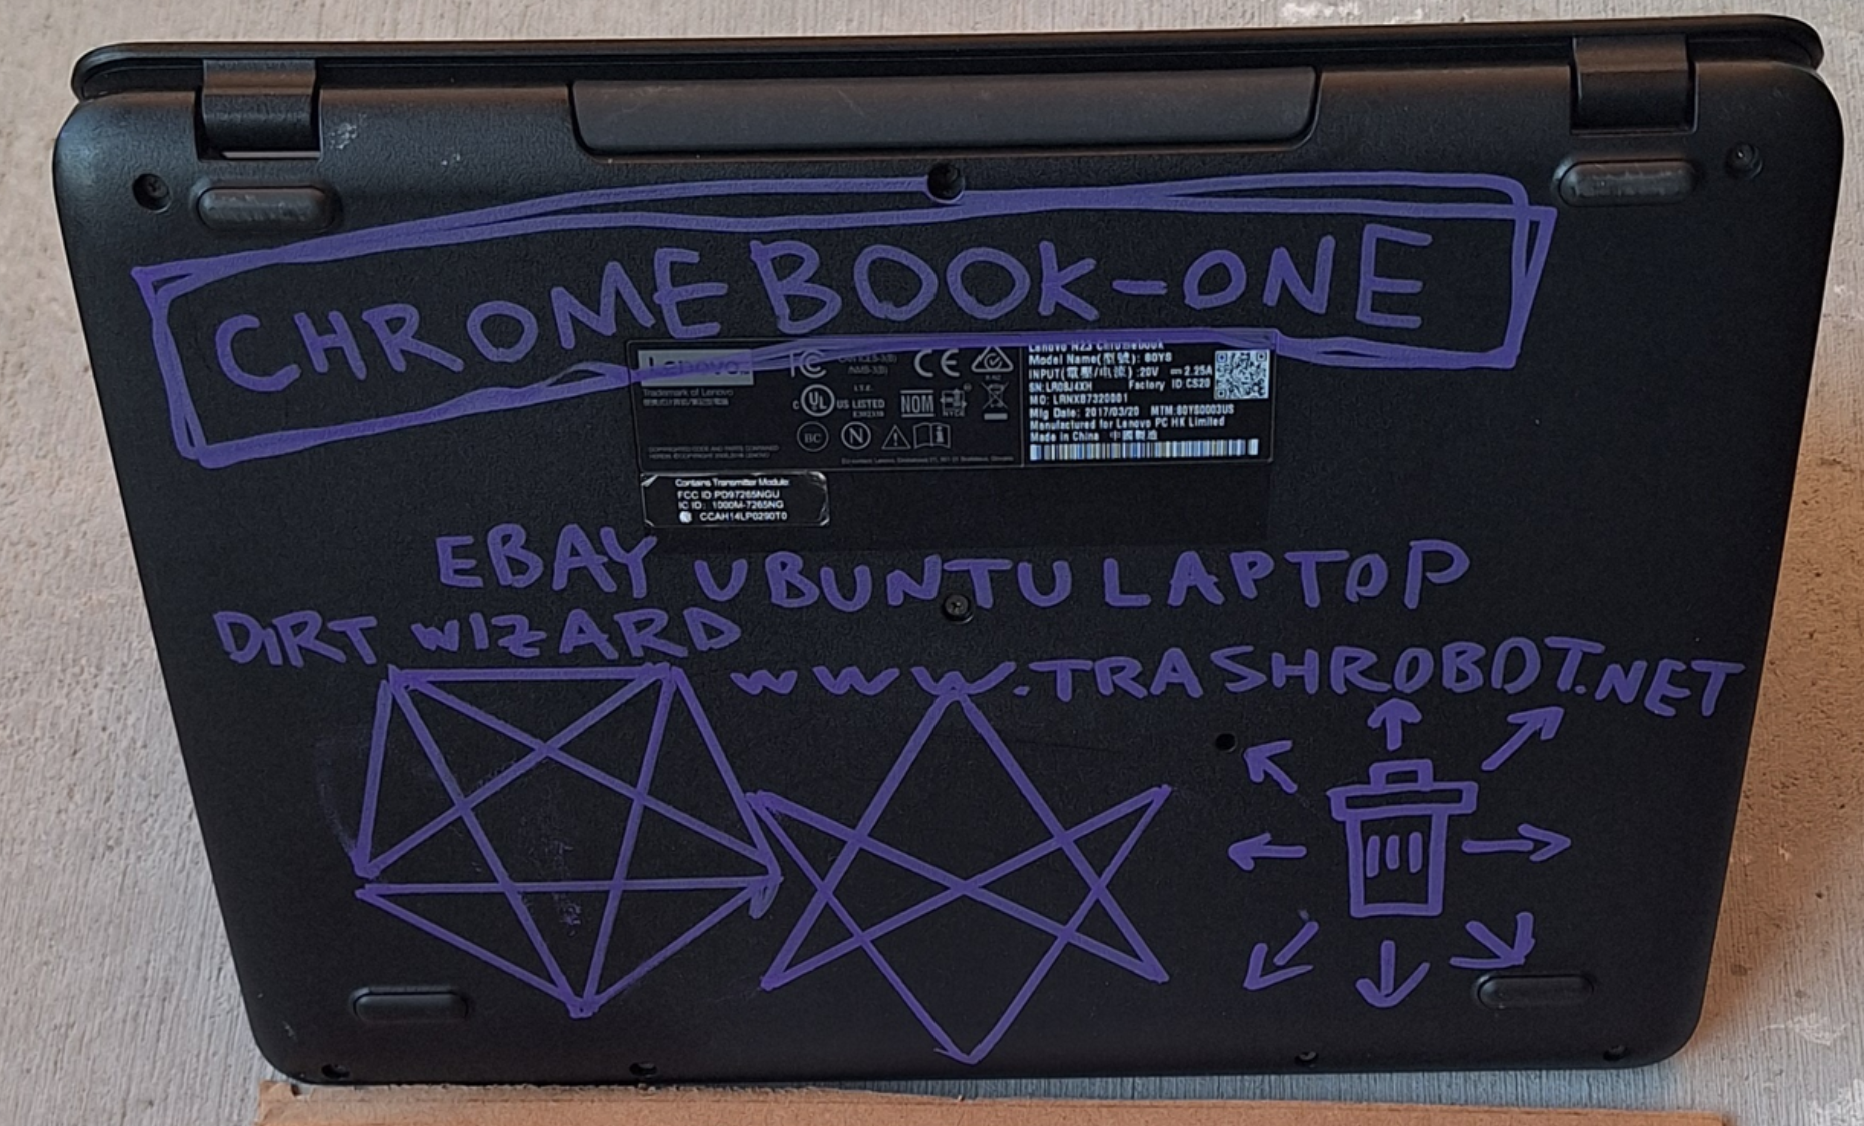 CHROMEBOOK-ONE
Lenovo
Trademark of Lenovo
FC
CE
c UL US LISTED
I.T.E.
NOM
NYCE
BC
N
Lenovo N23 Chromebook
Model Name(型號): 80YS
INPUT(電壓/电流): 20V ⎓ 2.25A
SN: LR08J4XH Factory ID:CS20
MO: LRNXB7320001
Mfg Date: 2017/03/20 MTM:80YS0003US
Manufactured for Lenovo PC HK Limited
Made in China 中國製造
Contains Transmitter Module:
FCC ID:PD97265NGU
IC ID: 1000M-7265NG
CCAH14LP0290T0
EBAY UBUNTU LAPTOP
DIRT WIZARD
WWW.TRASHROBOT.NET